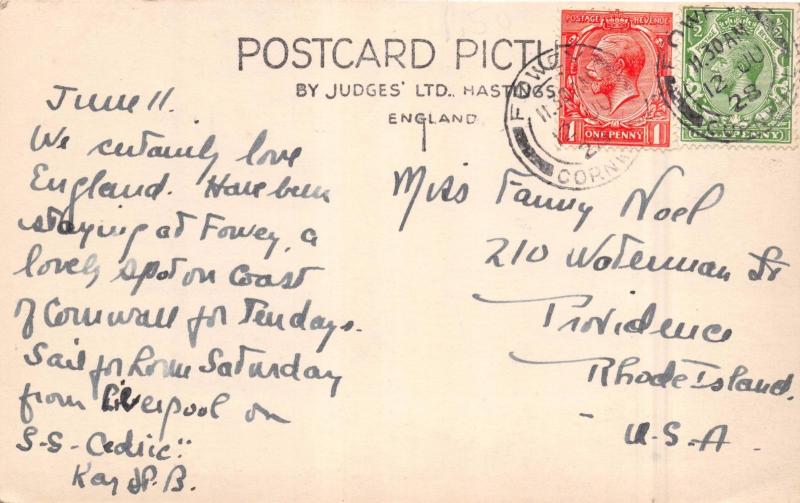 POSTCARD PICTU
BY JUDGES' LTD., HASTINGS,
ENGLAND
POSTAGE REVENUE
ONE PENNY
1
FOWEY
11.30AM
12 JU
28
CORNW
June 11.
We certainly love
England. Have been
staying at Fowey, a
lovely spot on Coast
of Cornwall for Ten days.
Sail for home Saturday
from Liverpool on
S-S-Cedric"
Kay
Miss Fanny Noel
210 Waterman St
Providence
Rhode Island.
U.S.A.